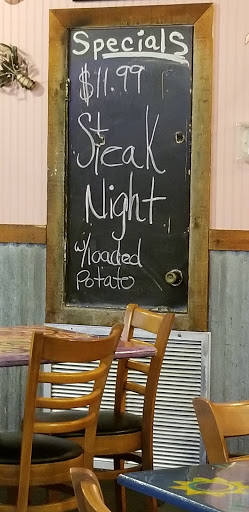 Specials
$11.99
Steak
Night
w/loaded
Potato